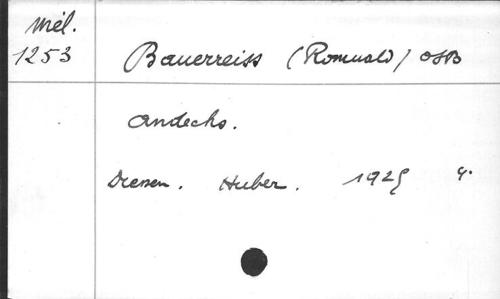 Mél.
1253 Bauerreiss (Romuald) OSB
Andechs.
Diessen. Huber. 1925 4.